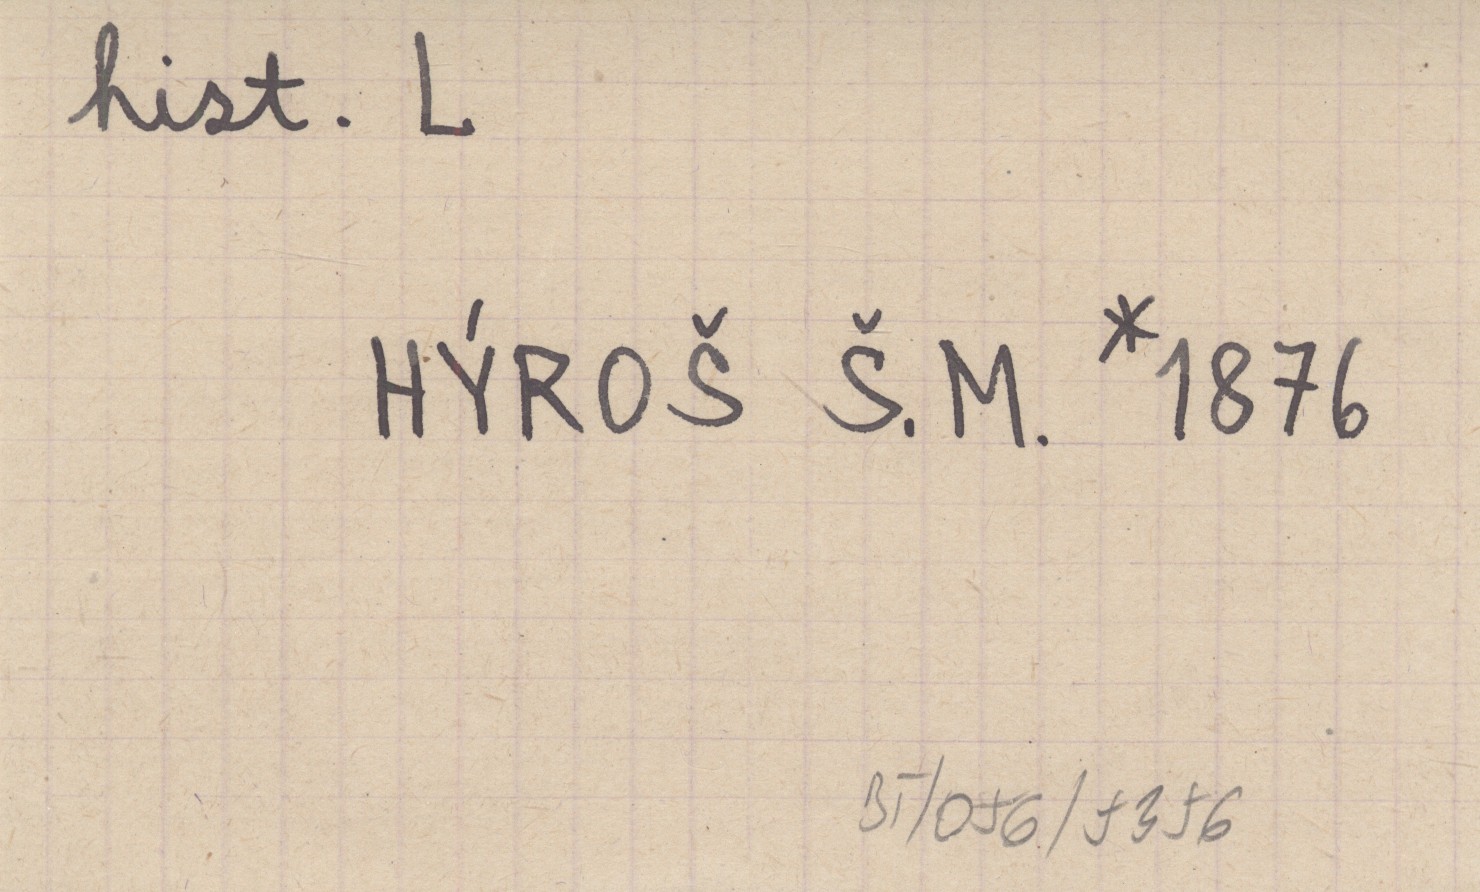 hist. L
HÝROŠ Š.M. *1876
BI/056/5356